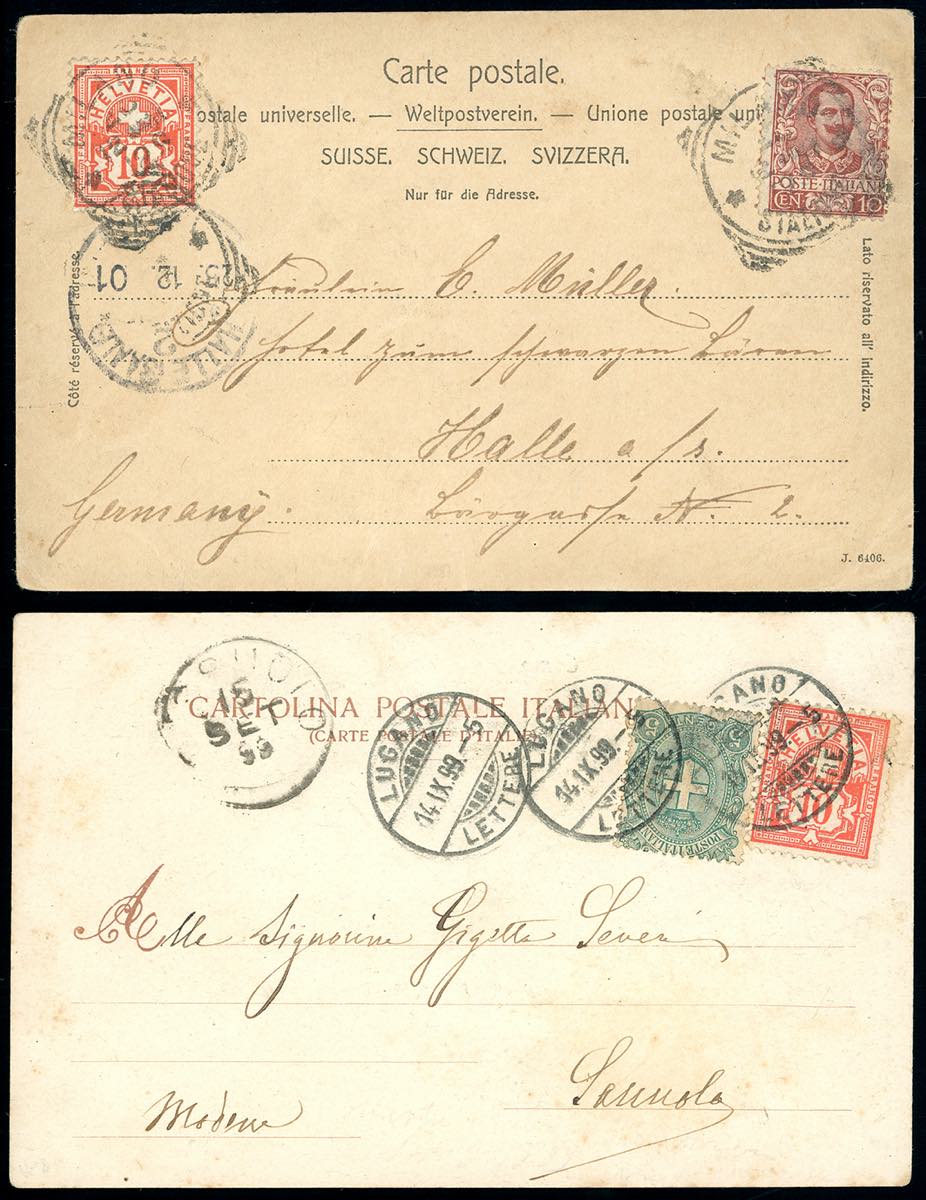 Carte postale.
HELVETIA
10
FRANCO
ostale universelle. — Weltpostverein. — Unione postale uni
SUISSE. SCHWEIZ. SVIZZERA.
Nur für die Adresse.
POSTE·ITALIANE
CEN 10
STAZ
23. 12. 01
HALLE (SAALE)
Côté réservé à l'adresse.
Lato riservato all' indirizzo.
Fräulein C. Müller.
Hotel zum schwarzen Bären
Halle a/s.
Germany. Bärgasse N. 2.
J. 6406.
CARTOLINA POSTALE ITALIAN
(CARTE POSTALE D'ITALIE)
15
SET
99
LUGANO
14.IX.99.–5
LETTERE
LUGANO
14.IX.99.–5
LETTERE
CEN 5
POSTE ITALIANE
GANO
99.–5
LETTERE
HELVETIA
10
FRANCO
Alle Signorine Gigetta Severi
Sassuolo
Modena